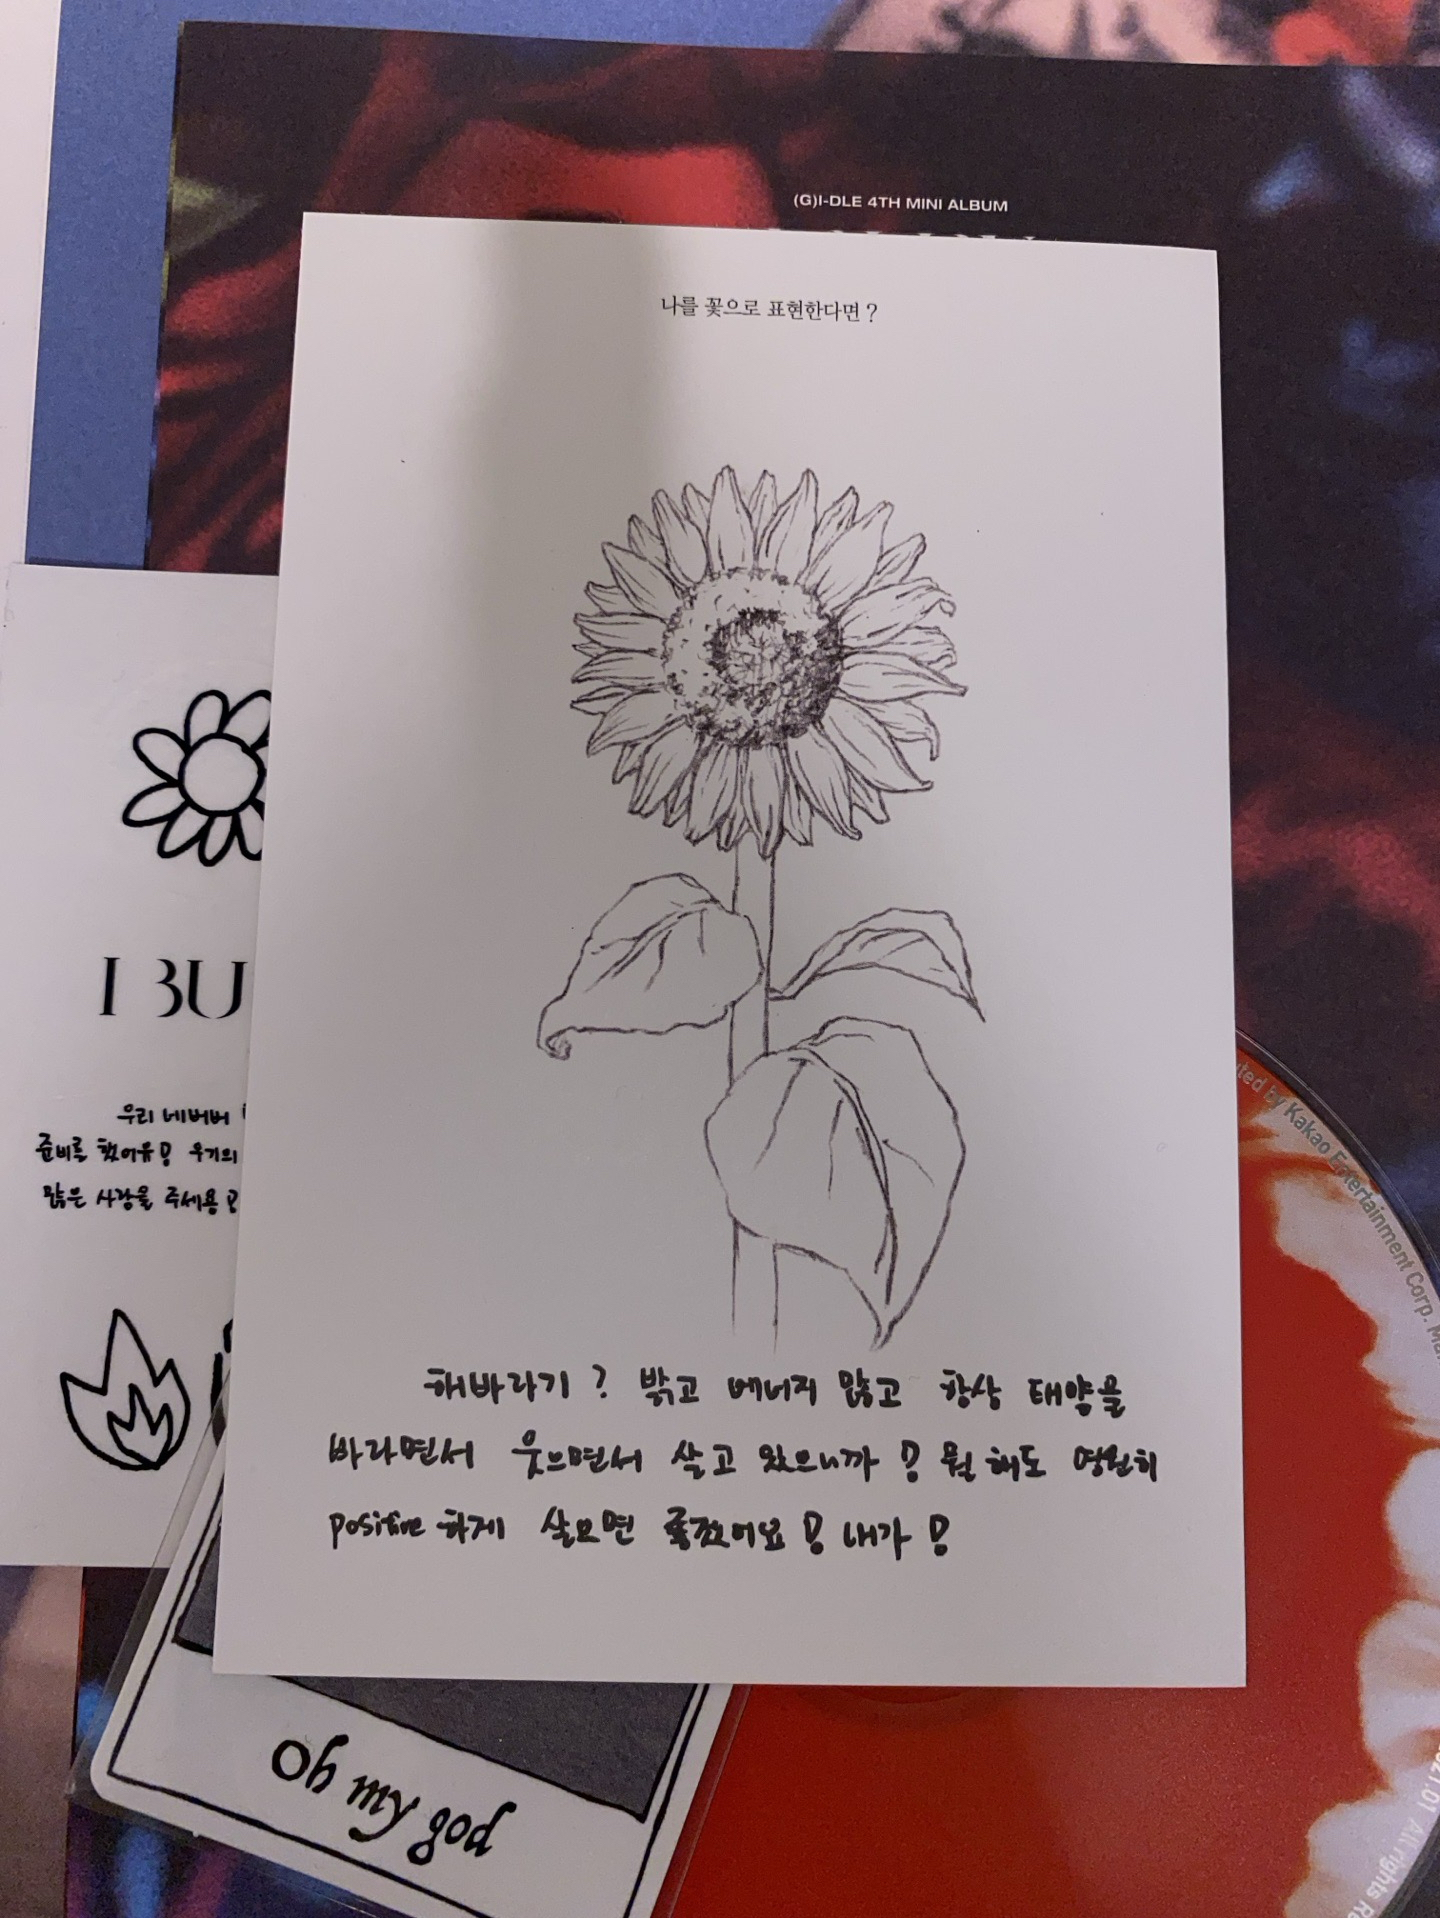 (G)I-DLE 4TH MINI ALBUM
나를 꽃으로 표현한다면 ?
I BU
우리 네버버
준비를 했어유! 우기의
많은 사랑을 주세용!
해바라기 ? 밝고 에너지 많고 항상 태양을
바라면서 웃으면서 살고 있으니까! 뭘 해도 영원히
positive 하게 살으면 좋겠어요! 내가!
Oh my god
uted by Kakao Entertainment Corp. Ma
021.01 All rights Re